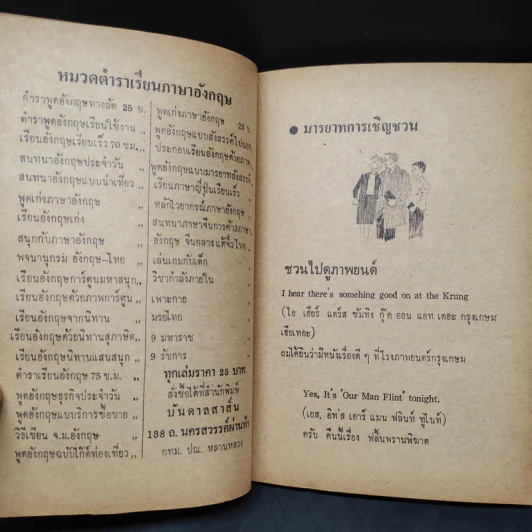 หมวดตำราเรียนภาษาอังกฤษ
ตำราพูดอังกฤษทางลัด 25 บ.
ตำราพูดอังกฤษเรียนใช้งาน ,,
เรียนอังกฤษเรียนเร็ว 70 ชม. ,,
สนทนาอังกฤษประจำวัน ,,
สนทนาอังกฤษแบบนำเที่ยว ,,
พูดเก่งภาษาอังกฤษ ,,
เรียนอังกฤษเก่ง ,,
สนุกกับภาษาอังกฤษ ,,
พจนานุกรม อังกฤษ-ไทย ,,
เรียนอังกฤษการ์ตูนมหาสนุก ,,
เรียนอังกฤษด้วยภาพการ์ตูน ,,
เรียนอังกฤษจากนิทาน ,,
เรียนอังกฤษด้วยนิทานสุภาษิต ,,
เรียนอังกฤษนิทานแสนสนุก ,,
ตำราเรียนอังกฤษ 75 ช.ม. ,,
พูดอังกฤษธุรกิจประจำวัน ,,
พูดอังกฤษแบบบริการซื้อขาย ,,
วิธีเขียน จ.ม.อังกฤษ ,,
พูดอังกฤษฉบับไก๊ด์ท่องเที่ยว ,,
พูดเก่งภาษาอังกฤษ 25 บ.
พูดอังกฤษแบบสังสรรค์
ประกอบเรียนอังกฤษด้วยภาพ
พูดอังกฤษแบบมารยาทสังสรรค์
เรียนภาษาญี่ปุ่นเรียนเร็ว ,,
หลักไวยากรณ์ภาษาอังกฤษ ,,
สนทนาภาษาจีนการค้า
อังกฤษ จีนกลาง แต้จิ๋ว ไทย ,,
เล่นเกมกับเด็ก ,,
วิชากำลังภายใน ,,
เพาะกาย ,,
มวยไทย ,,
9 มหาราช ,,
9 รัชการ ,,
ทุกเล่มราคา 25 บาท
สั่งซื้อได้ที่สำนักพิมพ์
บันดาลสาส์น
138 ถ. นครสวรรค์ผ่านฟ้า
กทม. ปณ. หลานหลวง
● มารยาทการเชิญชวน
ชวนไปดูภาพยนต์
I hear there's somehing good on at the Krung
(ไอ เฮียร์ แดร์ส ซัมทิง กู๊ด ออน แอท เดอะ กรุงเกษม
เธียเทอะ)
ผมได้ยินว่ามีหนังเรื่องดี ๆ ที่โรงภาพยนตร์กรุงเกษม
Yes, It's 'Our Man Flint' tonight.
(เยส, อิท'ส เอาร์ แมน ฟลินท์ ทูไนท์)
ครับ คืนนี้เรื่อง ฟลิ้นพรานพิฆาต